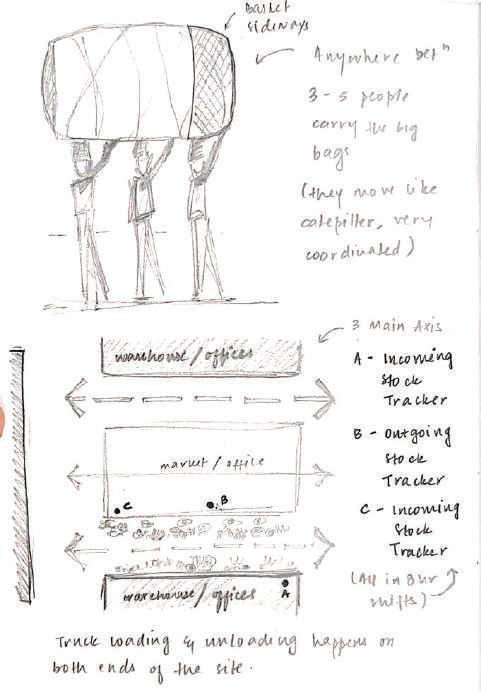 Basket
sideways
Anywhere betn
3 - 5 people
carry the big
bags
(they move like
catepiller, very
coordinated)
3 Main Axis
warehouse / offices
A - Incoming
Stock
Tracker
market / office
B - Outgoing
Stock
Tracker
C
B
C - Incoming
Stock
Tracker
warehouse / offices
A
(All in 8hr
shifts)
Truck loading & unloading happens on
both ends of the site.